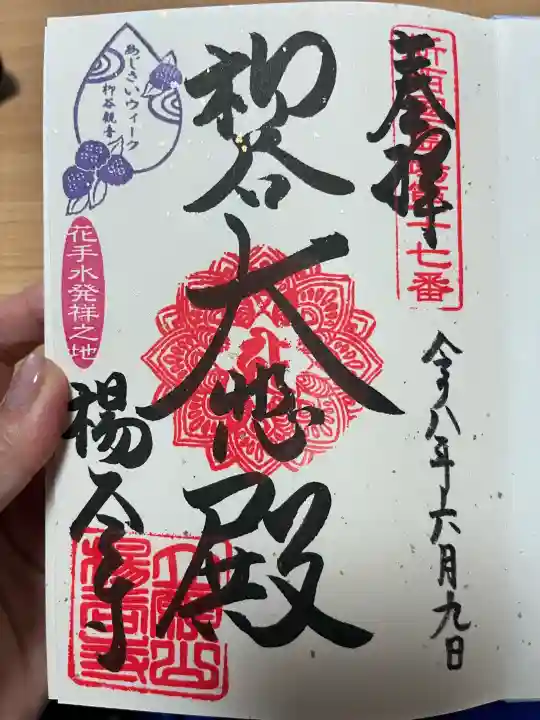 奉拝
新西国霊場第十七番
令和八年六月九日
柳谷
大悲殿
あじさいウィーク
柳谷観音
花手水発祥之地
楊谷寺